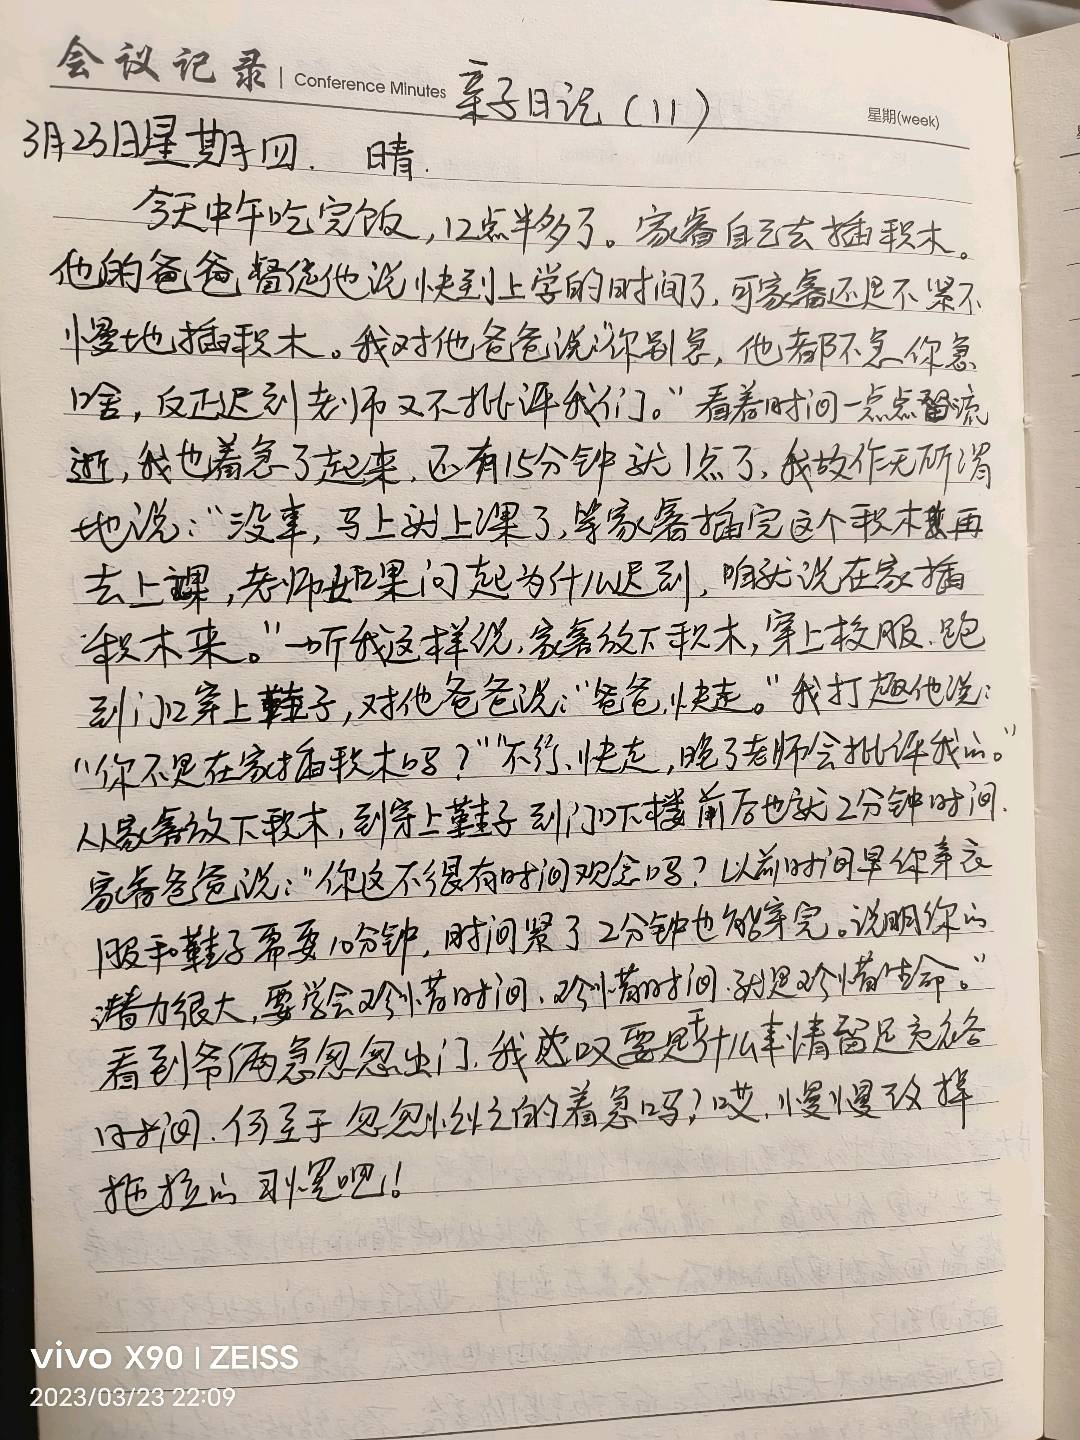 会议记录 | Conference Minutes 亲子日记（11） 星期(week)
3月23日星期四. 晴.
今天中午吃完饭，12点半多了。家睿自己去插积木。
他的爸爸督促他说快到上学的时间了，可家睿还是不紧不
慢地插积木。我对他爸爸说："你别急，他都不急你急
啥，反正迟到老师又不批评我们。"看着时间一点点流
逝，我也着急了起来，还有15分钟就1点了，我故作无所谓
地说："没事，马上就上课了，等家睿插完这个积木再
去上课，老师如果问起为什么迟到，咱就说在家插
积木来。"一听我这样说，家睿放下积木，穿上校服.跑
到门口穿上鞋子，对他爸爸说："爸爸，快走。"我打趣他说：
"你不是在家插积木吗？""不行、快走，晚了老师会批评我的。"
从家睿放下积木，到穿上鞋子到门口下楼前后也就2分钟时间.
家睿爸爸说："你这不很有时间观念吗？以前时间早你穿衣
服和鞋子需要10分钟，时间紧了2分钟也能穿完。说明你的
潜力很大，要学会珍惜时间、珍惜时间.就是珍惜生命。"
看到爷俩急忽忽出门.我感叹要是干什么事情留足充裕
时间.何至于忽忽忙忙的着急吗？哎.慢慢改掉
拖拉的习惯吧！
vivo X90 | ZEISS
2023/03/23 22:09